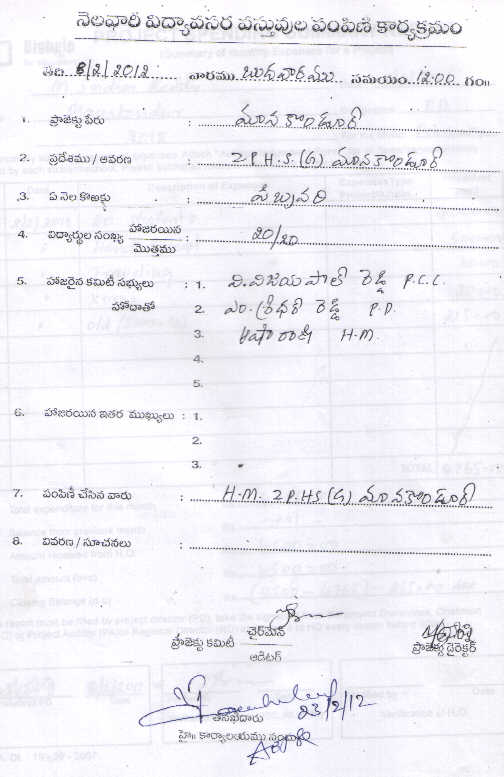 నెలవారీ విద్యావసర వస్తువుల పంపిణి కార్యక్రమం
తేది 8/2/2012 వారము బుధవారము సమయం 12:00 గం॥
1. ప్రాజెక్టు పేరు : మానకొండూర్
2. ప్రదేశము / ఆవరణ : Z.P.H.S.(G) మానకొండూర్
3. ఏ నెల కొఱకు : పిబ్రవరి
4. విద్యార్థుల సంఖ్య హాజరయిన / మొత్తము : 20/20
5. హాజరైన కమిటీ సభ్యులు : 1. వి.విజయపాల్ రెడ్డి P.C.C.
హోదాతో 2. ఎం.శ్రీధర్ రెడ్డి P.D.
3. H.M.
4.
5.
6. హాజరయిన ఇతర ముఖ్యులు : 1.
2.
3.
7. పంపిణీ చేసిన వారు : H.M. Z.P.H.S (G) మానకొండూర్
8. వివరణ / సూచనలు :
ప్రాజెక్టు కమిటీ ఛైర్‌మెన్ / ఆడిటర్
ప్రాజెక్టు డైరెక్టర్
23/2/12
తనిఖీదారు
హై॥ కార్యాలయము